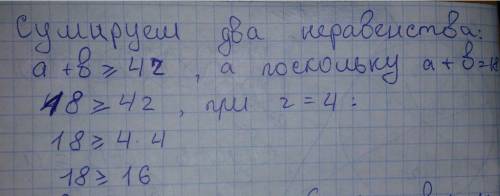 Сумируем два неравенства:
a + b ≥ 4z, а поскольку a + b = 18
18 ≥ 4z, при z = 4:
18 ≥ 4·4
18 ≥ 16